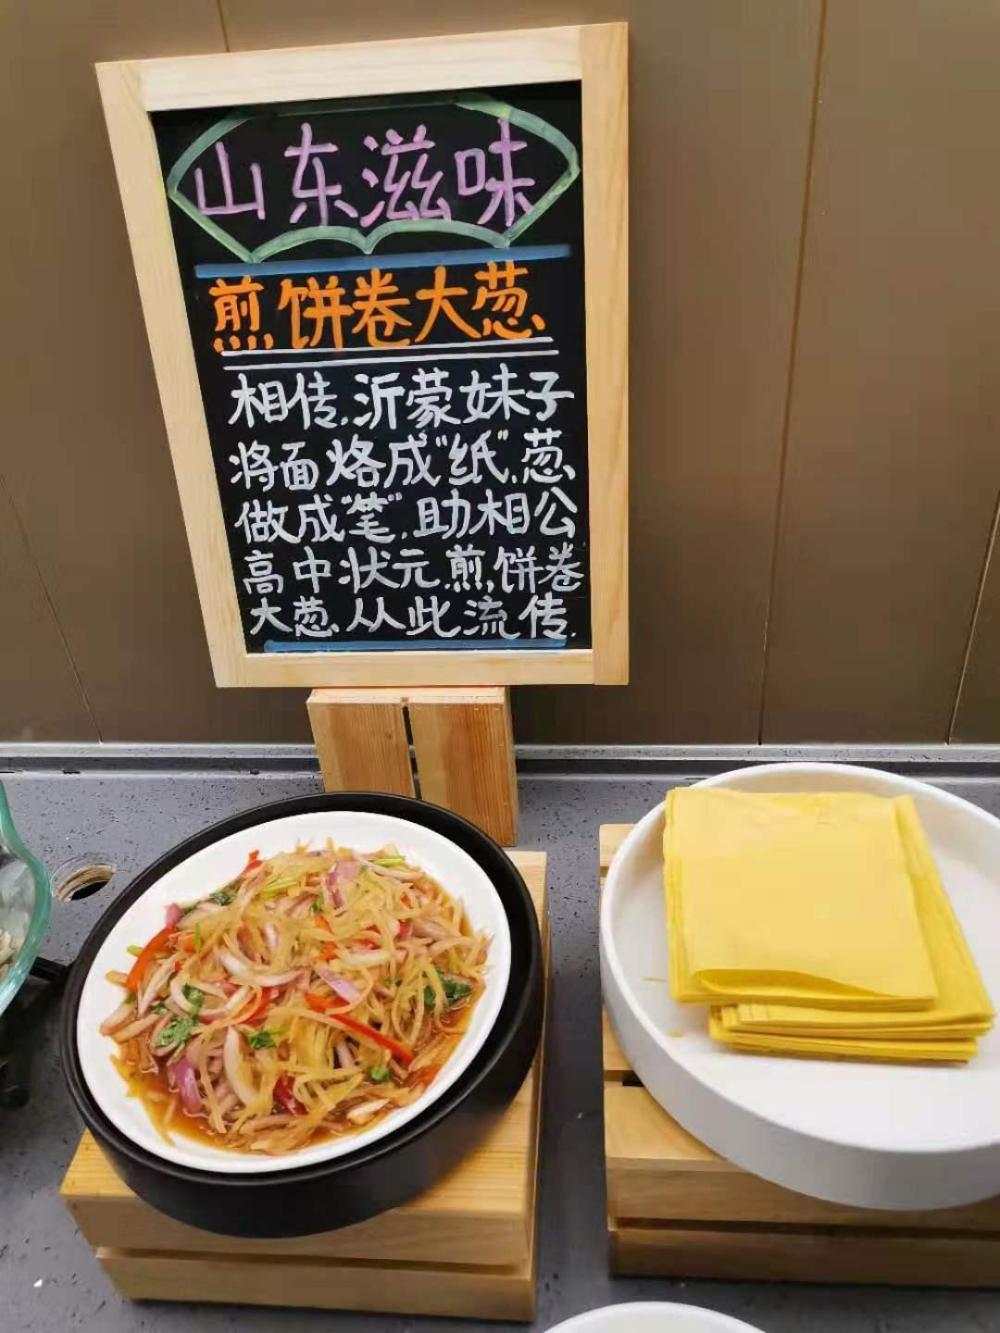 山东滋味
煎饼卷大葱
相传,沂蒙妹子
将面烙成"纸",葱
做成"笔",助相公
高中状元.煎饼卷
大葱.从此流传.